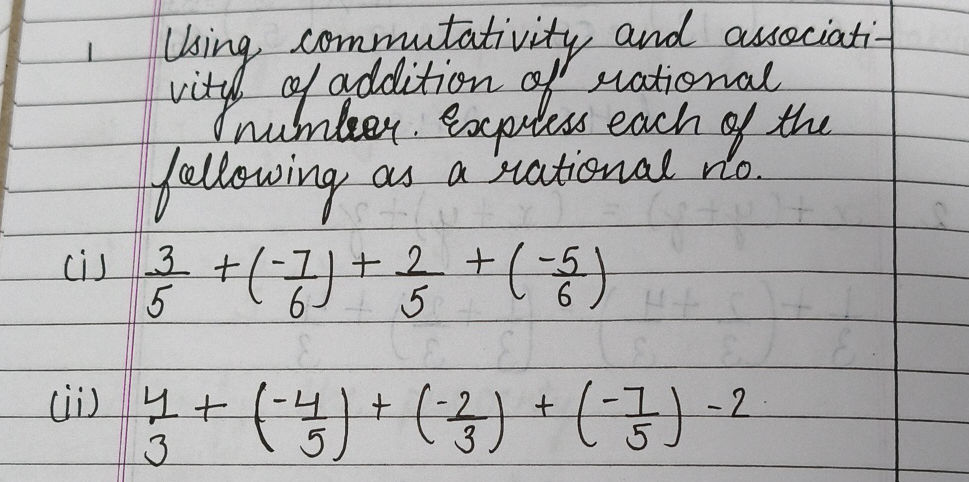 1 Using commutativity and associati-
vity of addition of rational
number. Express each of the
following as a rational no.
(i) 3/5 + (-7/6) + 2/5 + (-5/6)
(ii) 4/3 + (-4/5) + (-2/3) + (-7/5) - 2